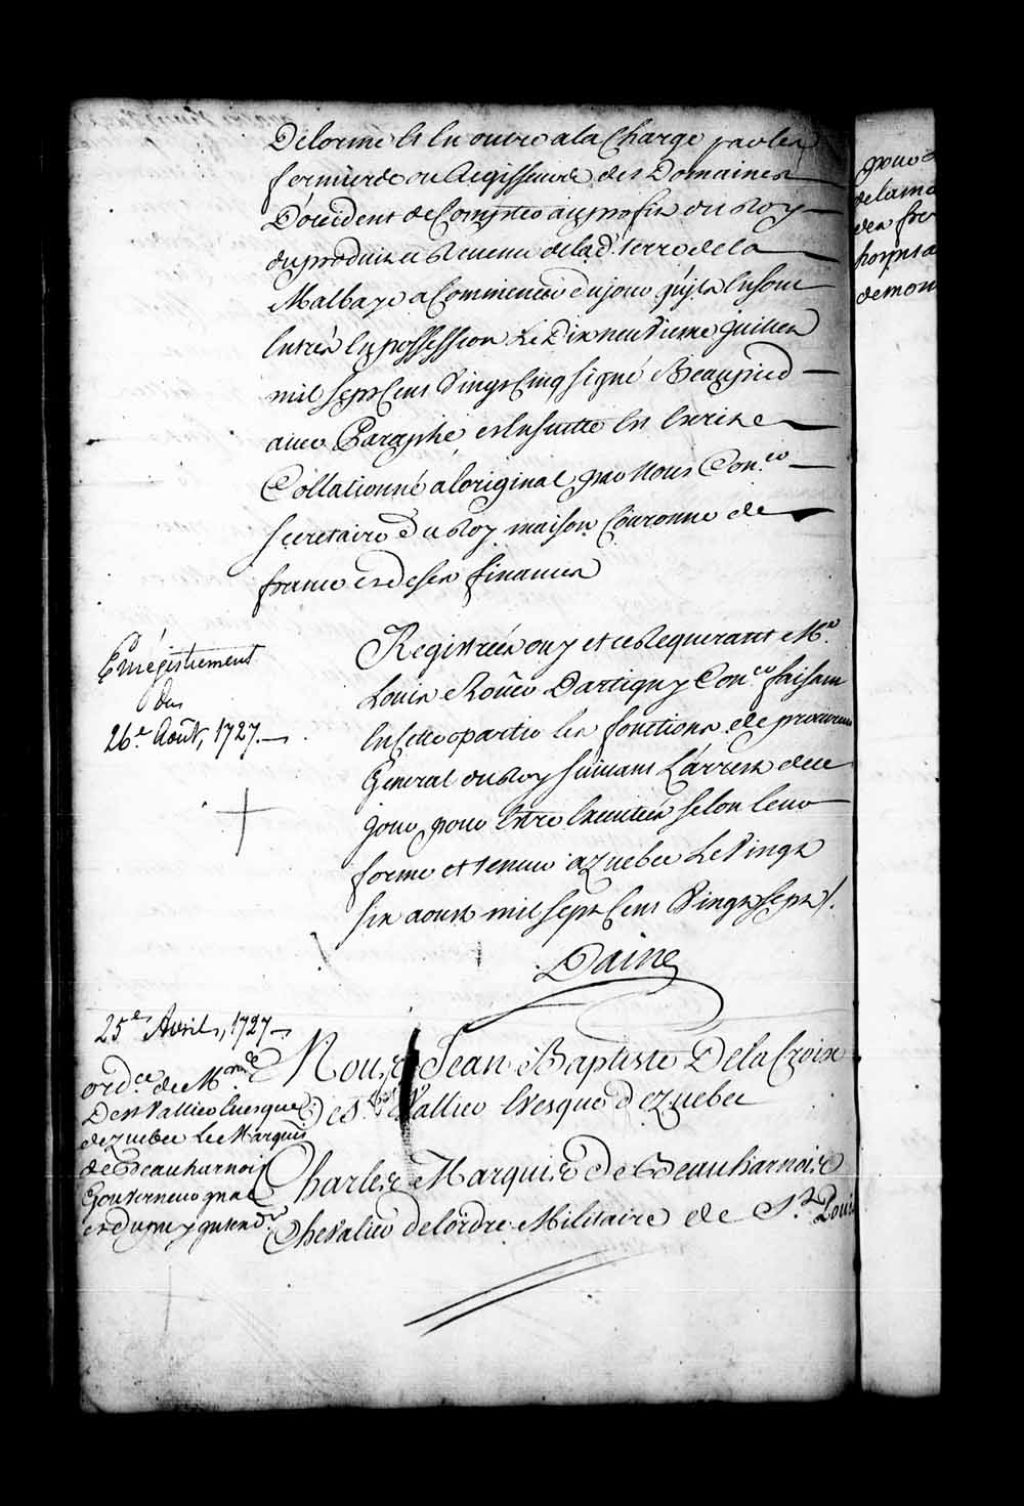 Delorme et En outre a la Charge par les
fermiers ou Regisseurs des Domaines
D'occident de Compter au profit du Roy
du produit et Revenu de lad. terre de la
Malbaye a Commencer du jour qu'ils En sont
Entrés En possession Le Dix neuvieme juillet
mil sept Cens Vingt Cinq signé Beaupied
avec Paraphe et Ensuitte Est Ecrit
Collationné a loriginal par Nous Con.er
secretaire Du Roy maison Couronne de
france et de ses finances
Enrégistrement
du
26.e Août, 1727.
Registrées ouy et ce Requerant M.e
Louis Roüer Dartigny Con.er faisant
En Cette partie les fonctions de procureur
General du Roy suivant L'arrest de ce
jour pour Estre Executées selon leur
forme et teneur a quebec Le Vingt
six aoust mil sept Cens Vingt sept /.
Daine
25.e Avril, 1727
ord.ce de M.
De St Vallier Evesque
de quebec Le Marquis
de Beauharnois
Gouverneur gnal
et Dupuy intend.t
Nous Jean Baptiste De la Croix
De St. Vallier Evesque de quebec
Charles Marquis De Beauharnois
Chevalier de lordre Militaire de St. Louis
pour
de la
des
de mon